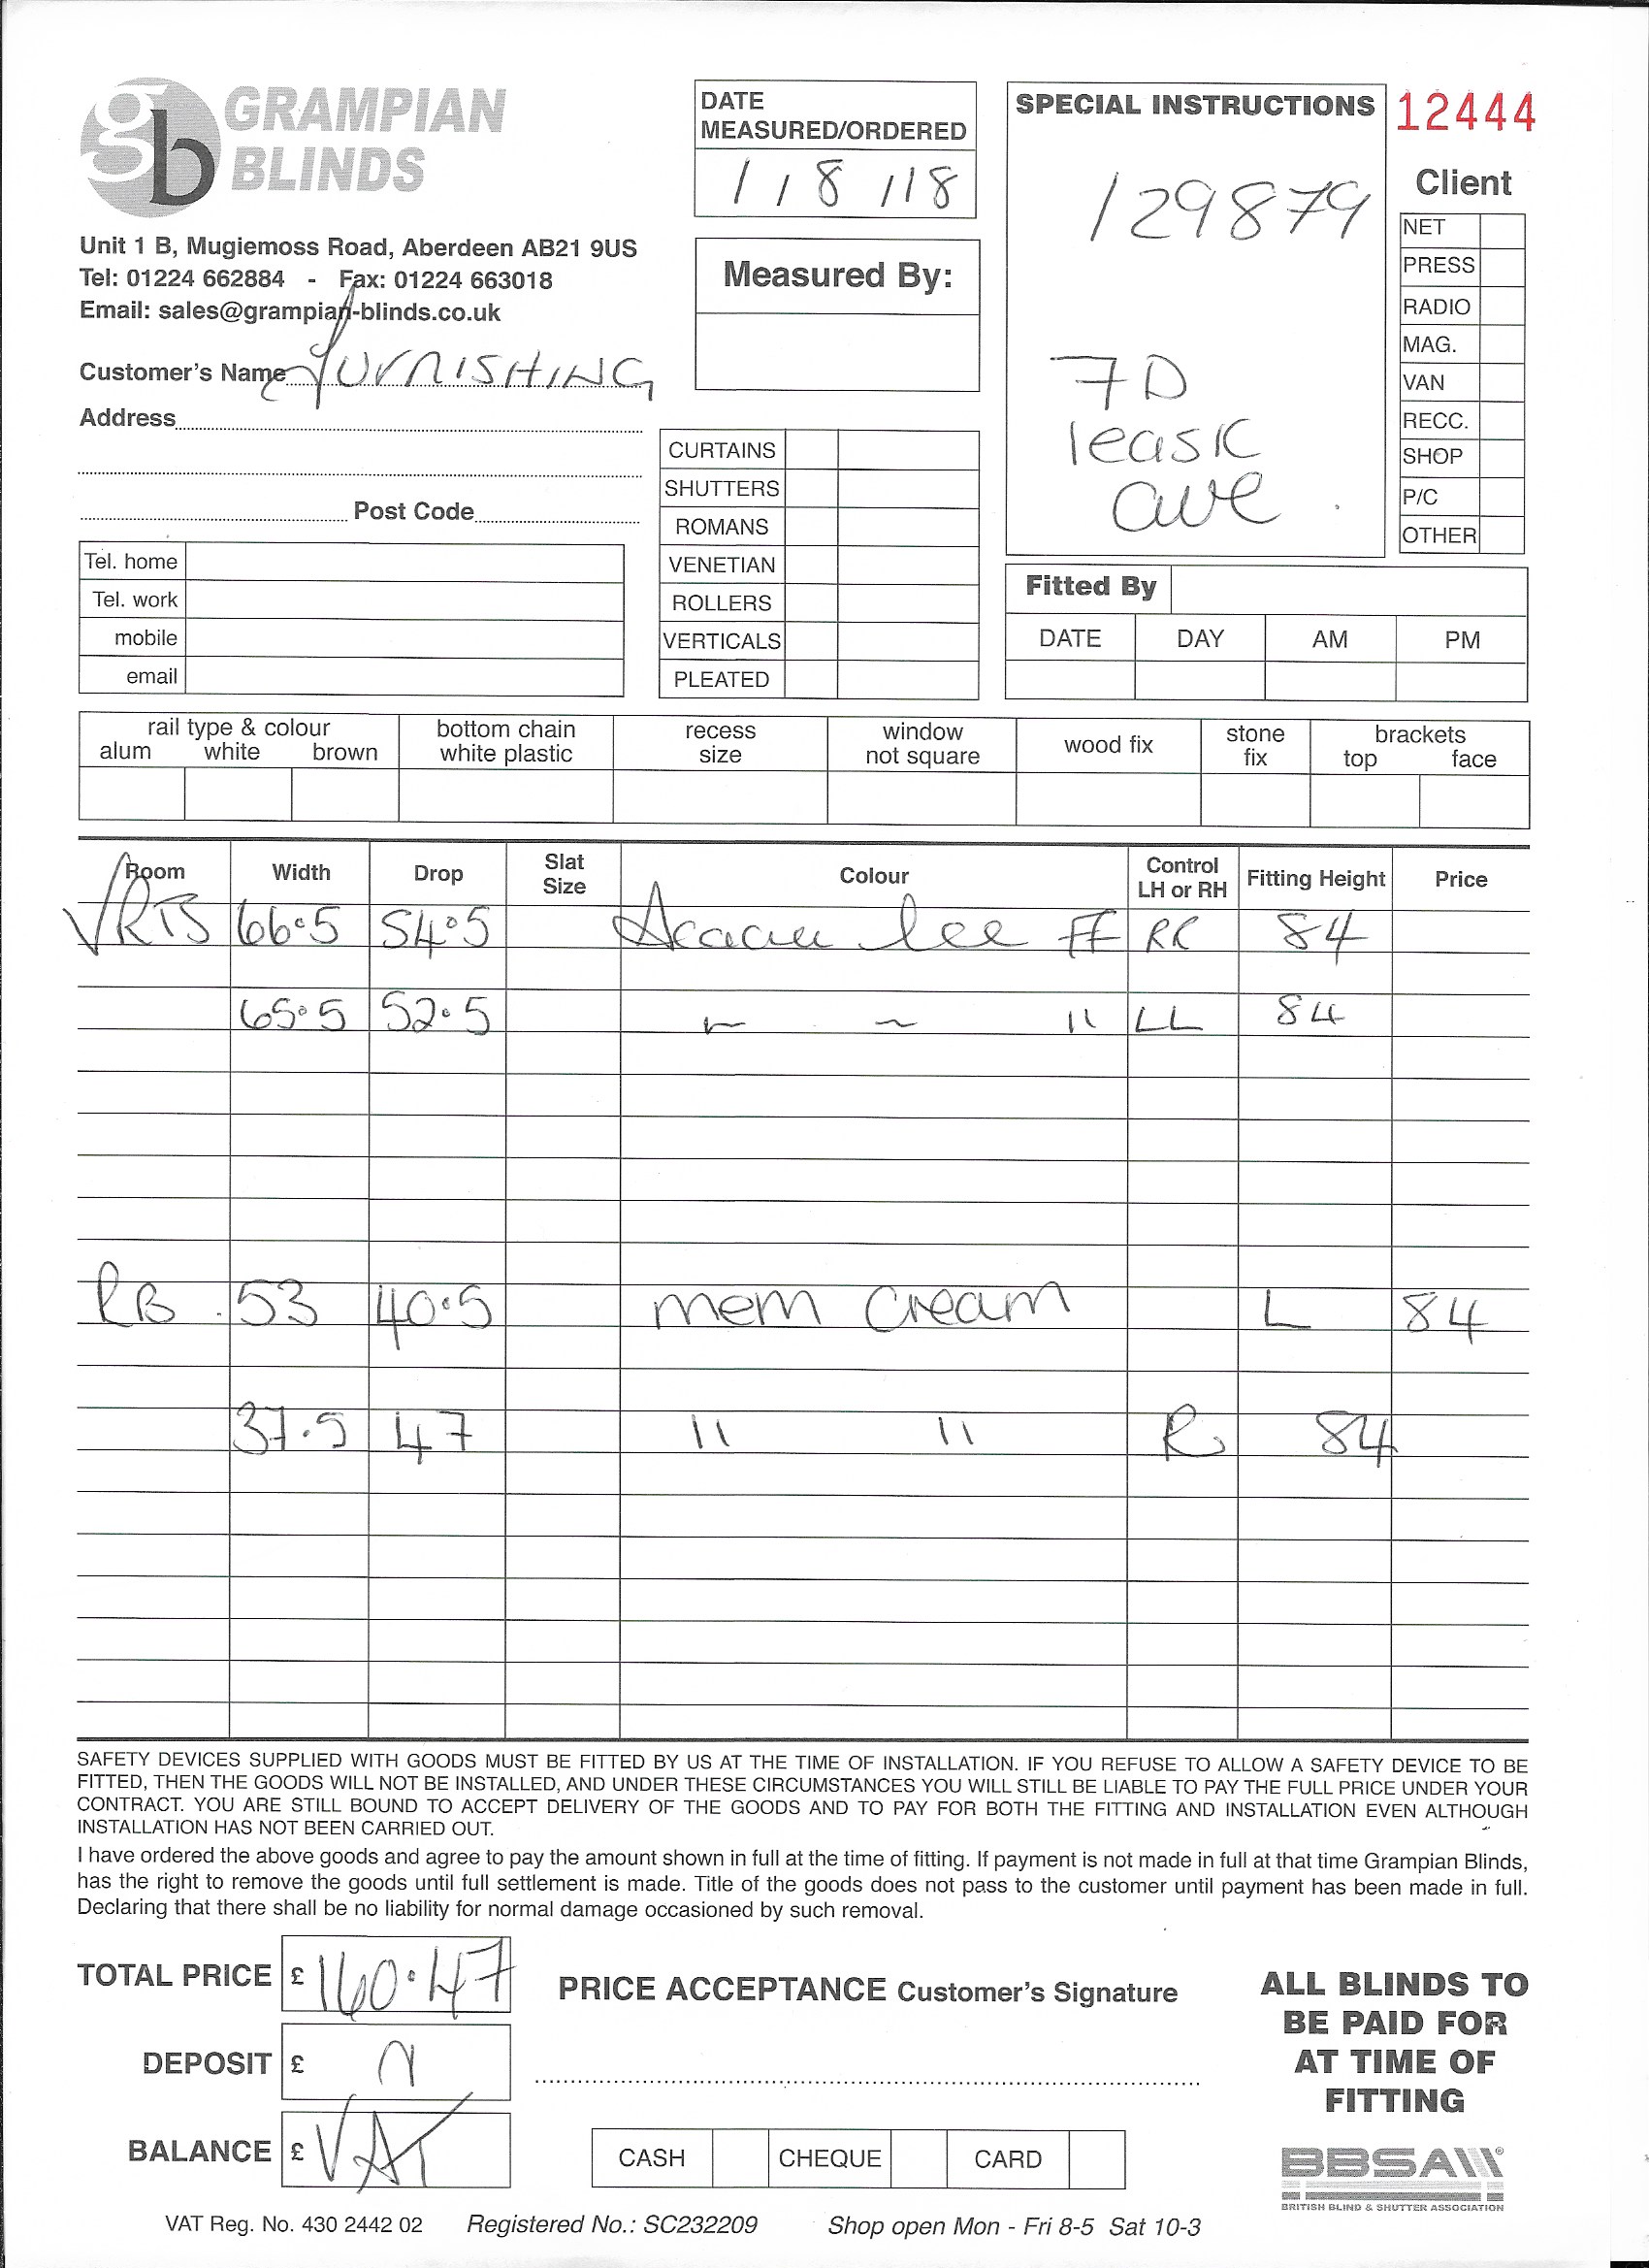 gb GRAMPIAN
BLINDS
Unit 1 B, Mugiemoss Road, Aberdeen AB21 9US
Tel: 01224 662884 - Fax: 01224 663018
Email: sales@grampian-blinds.co.uk
Customer's Name FURNISHING
Address
Post Code
Tel. home
Tel. work
mobile
email
DATE
MEASURED/ORDERED
1/8/18
Measured By:
CURTAINS
SHUTTERS
ROMANS
VENETIAN
ROLLERS
VERTICALS
PLEATED
SPECIAL INSTRUCTIONS
129879
7D
leask
ave
12444
Client
NET
PRESS
RADIO
MAG.
VAN
RECC.
SHOP
P/C
OTHER
Fitted By
DATE DAY AM PM
rail type & colour
alum white brown
bottom chain
white plastic
recess
size
window
not square
wood fix
stone
fix
brackets
top face
Room Width Drop Slat Size Colour Control LH or RH Fitting Height Price
VRTS 66.5 54.5 FF RR 84
65.5 52.5 " LL 84
RB 53 40.5 mem cream L 84
37.5 47 " " R 84
SAFETY DEVICES SUPPLIED WITH GOODS MUST BE FITTED BY US AT THE TIME OF INSTALLATION. IF YOU REFUSE TO ALLOW A SAFETY DEVICE TO BE
FITTED, THEN THE GOODS WILL NOT BE INSTALLED, AND UNDER THESE CIRCUMSTANCES YOU WILL STILL BE LIABLE TO PAY THE FULL PRICE UNDER YOUR
CONTRACT. YOU ARE STILL BOUND TO ACCEPT DELIVERY OF THE GOODS AND TO PAY FOR BOTH THE FITTING AND INSTALLATION EVEN ALTHOUGH
INSTALLATION HAS NOT BEEN CARRIED OUT.
I have ordered the above goods and agree to pay the amount shown in full at the time of fitting. If payment is not made in full at that time Grampian Blinds,
has the right to remove the goods until full settlement is made. Title of the goods does not pass to the customer until payment has been made in full.
Declaring that there shall be no liability for normal damage occasioned by such removal.
TOTAL PRICE £ 160.47
DEPOSIT £ n
BALANCE £ VAT
PRICE ACCEPTANCE Customer's Signature
CASH CHEQUE CARD
ALL BLINDS TO
BE PAID FOR
AT TIME OF
FITTING
BBSA
BRITISH BLIND & SHUTTER ASSOCIATION
VAT Reg. No. 430 2442 02 Registered No.: SC232209 Shop open Mon - Fri 8-5 Sat 10-3